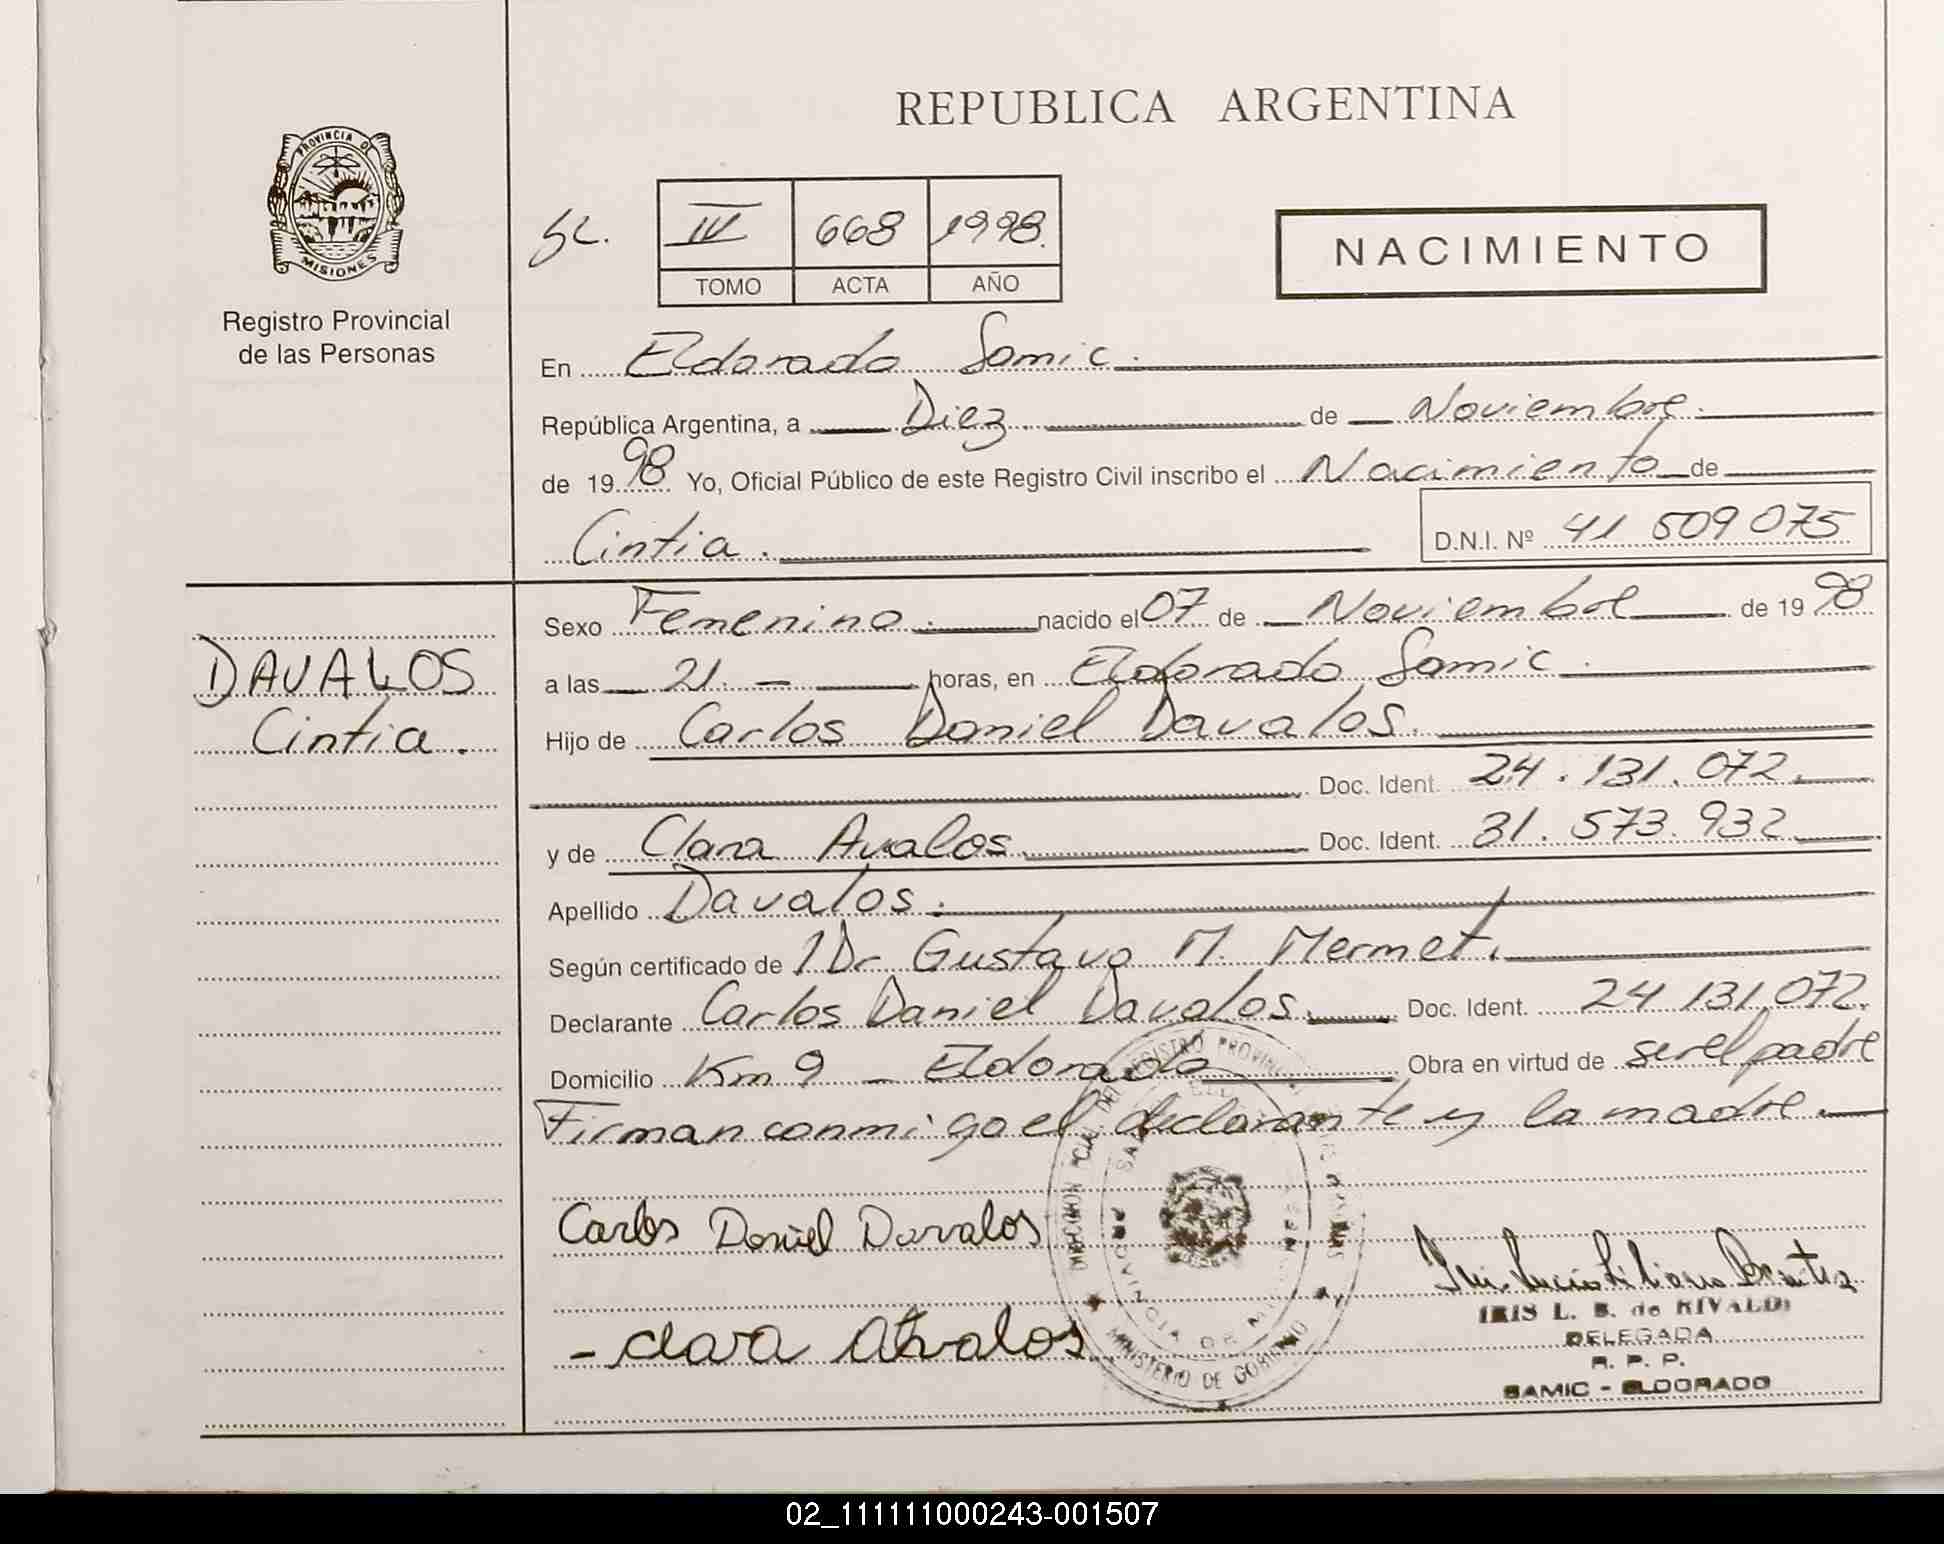 REPUBLICA ARGENTINA
PROVINCIA DE
MISIONES
Registro Provincial
de las Personas
IV 668 1998.
TOMO ACTA AÑO
NACIMIENTO
En Eldorado Samic.
República Argentina, a Diez. de Noviembre.
de 1998 Yo, Oficial Público de este Registro Civil inscribo el Nacimiento de
Cintia. D.N.I. Nº 41 509 075
DAVALOS
Cintia.
Sexo Femenino. nacido el 07 de Noviembre de 1998
a las 21. — horas, en Eldorado Samic.
Hijo de Carlos Daniel Davalos.
Doc. Ident. 24.131.072.
y de Clara Avalos. Doc. Ident. 31.573.932
Apellido Davalos.
Según certificado de 1 Dr Gustavo M. Mermet.
Declarante Carlos Daniel Davalos. Doc. Ident. 24 131,072.
Domicilio Km 9 - Eldorado Obra en virtud de ser el padre
Firman conmigo el declarante y la madre.
Carlos Daniel Davalos
- clara Avalos
MINISTERIO DE GOBIERNO
PROVINCIA DE MISIONES
IRIS L. B. de RIVALDI
DELEGADA
R. P. P.
SAMIC - ELDORADO
02_111111000243-001507